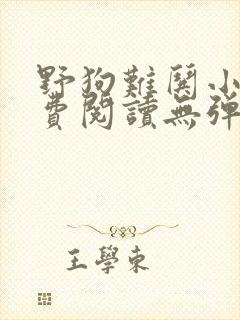 野狗難關小
費閱讀無彈
王學東